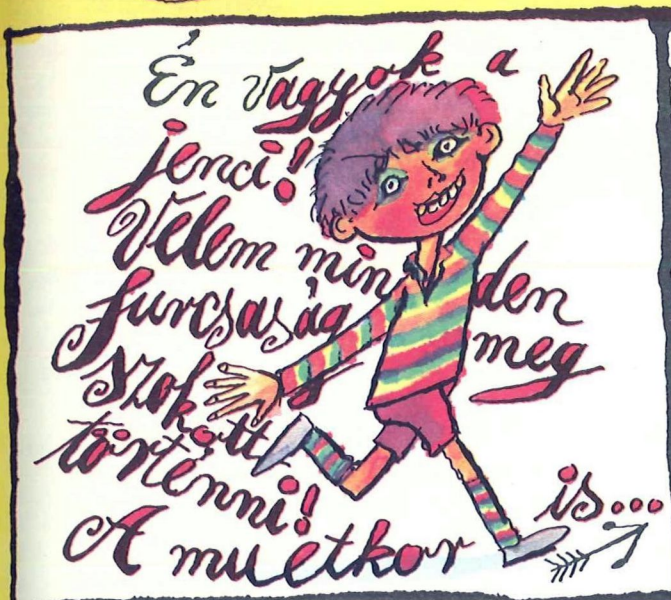 Én vagyok a
jenci!
Velem minden
furcsaság meg
szokott
történni!
A multkor is...